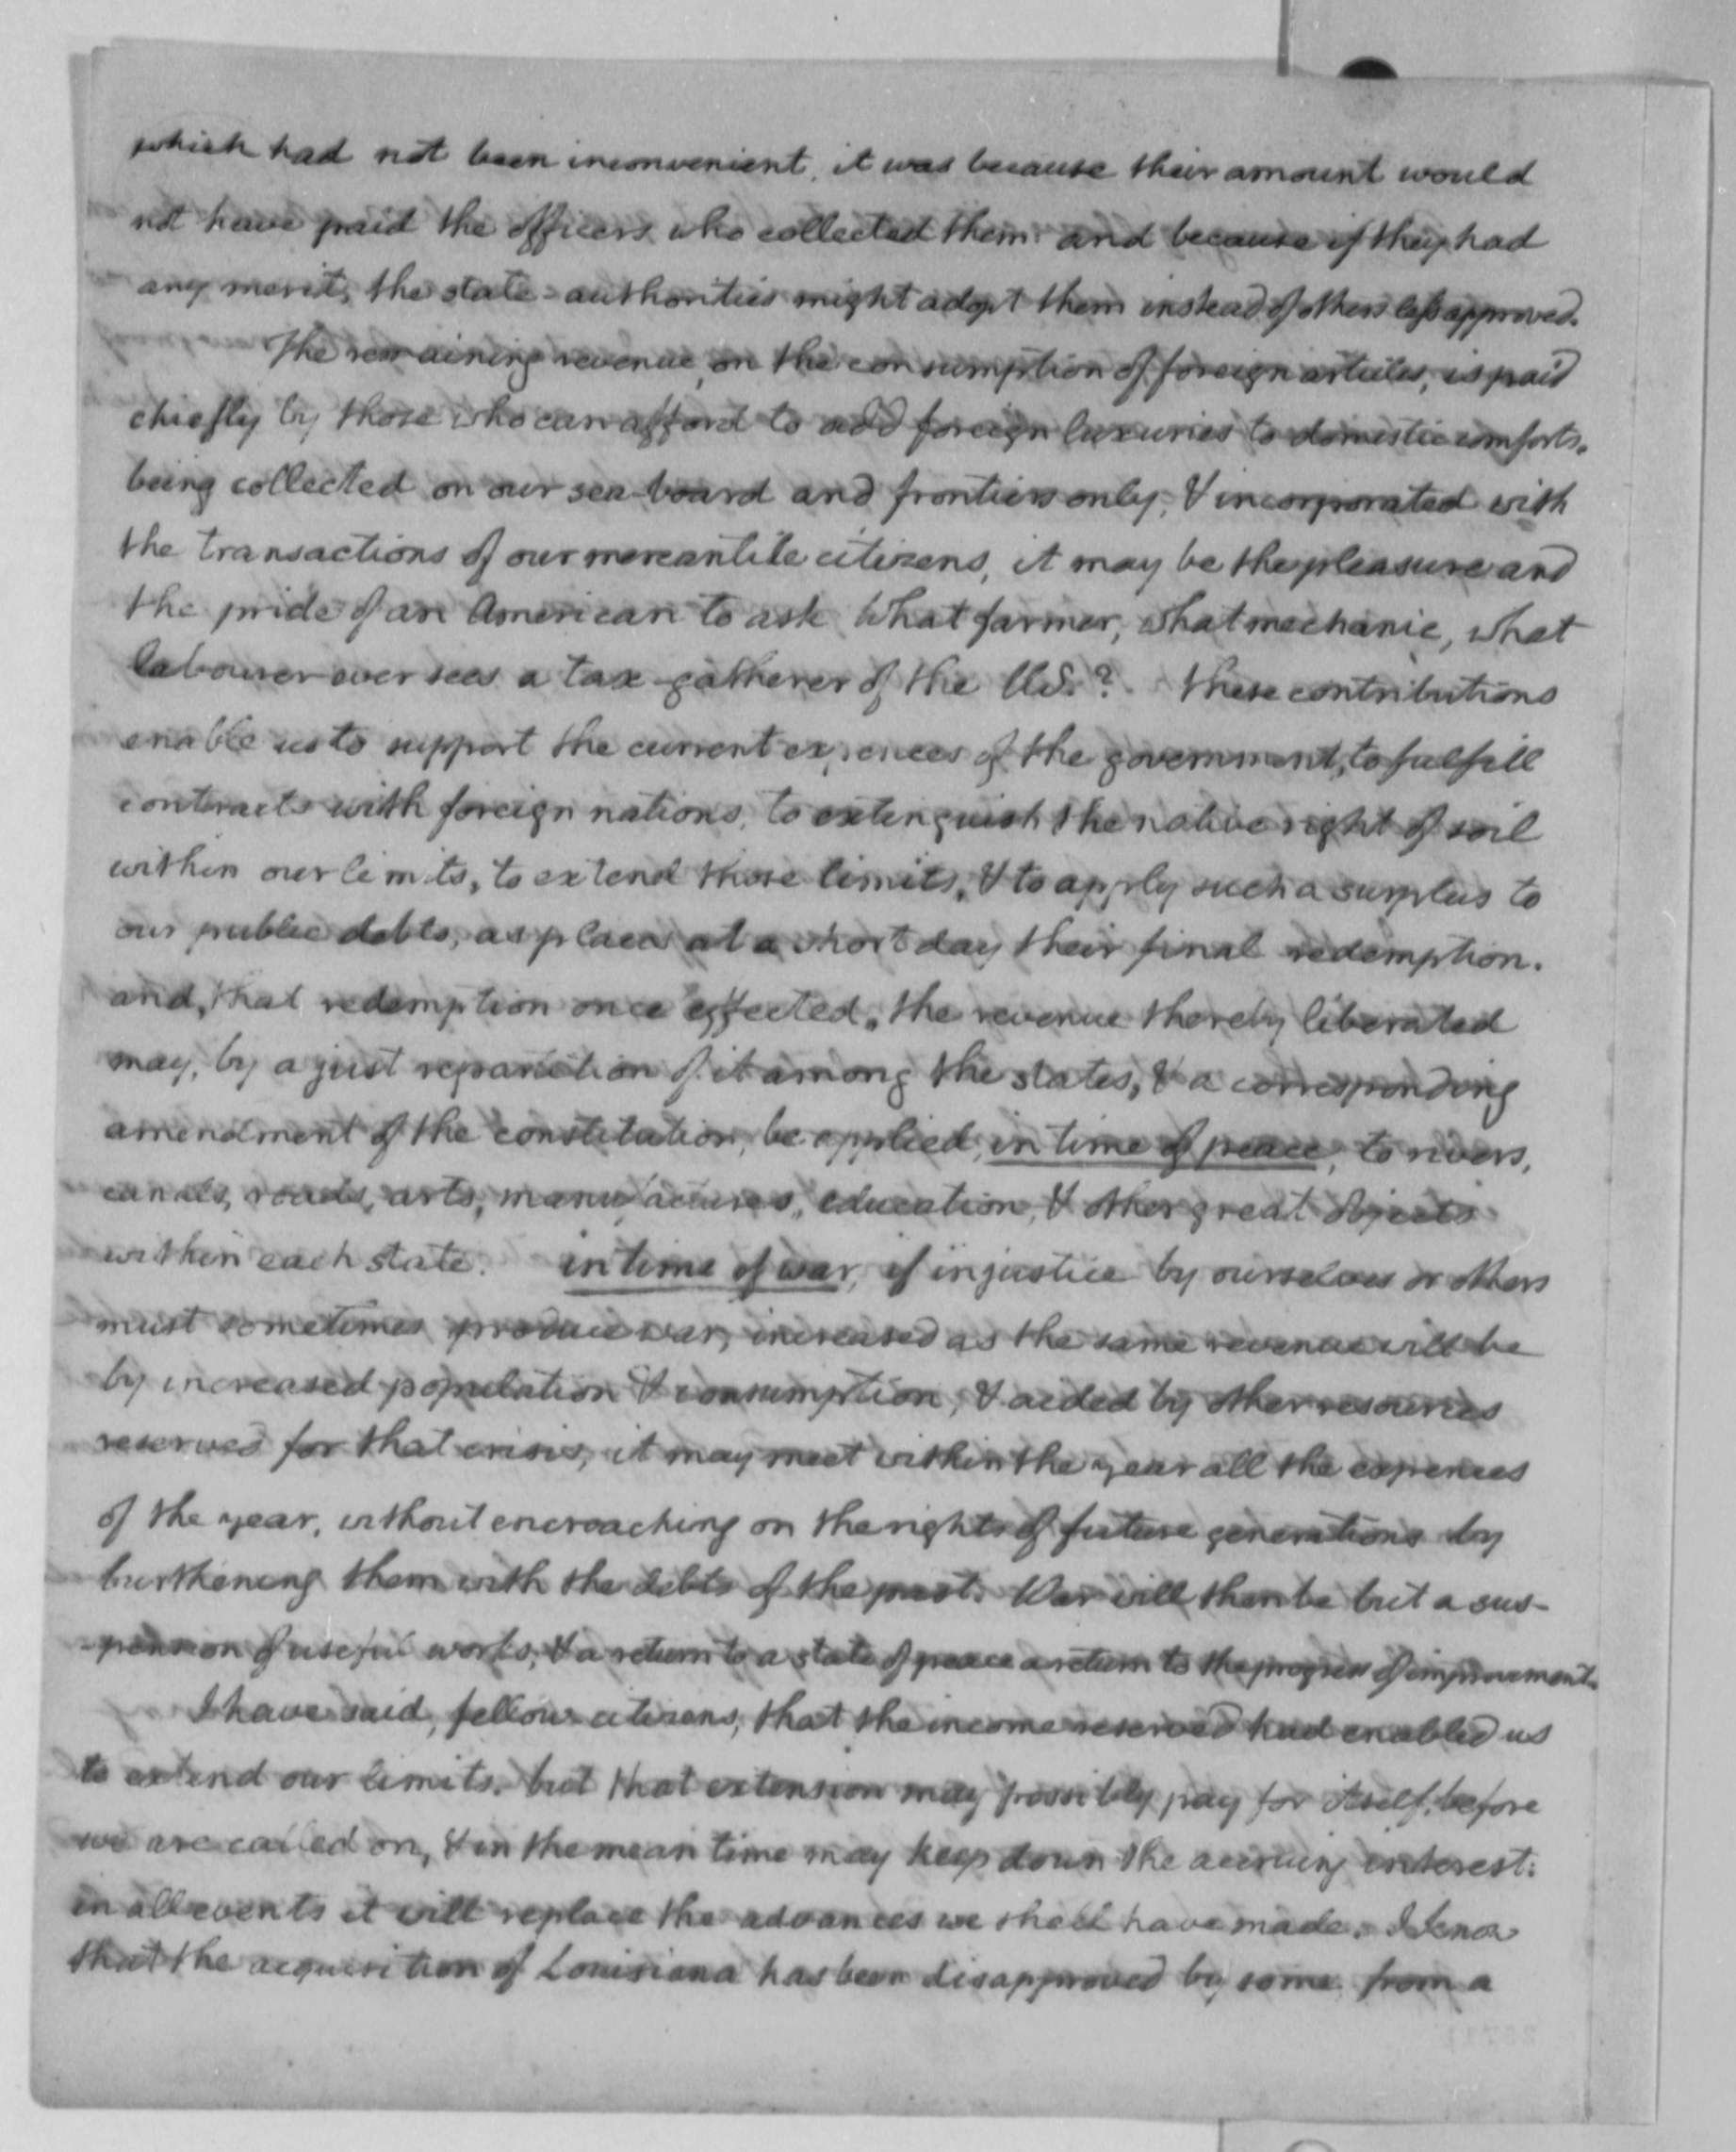 which had not been inconvenient, it was because their amount would
not have paid the officers who collected them: and because if they had
any merit, the state-authorities might adopt them instead of others less approved.
The remaining revenue, on the consumption of foreign articles, is paid
chiefly by those who can afford to add foreign luxuries to domestic comforts.
being collected on our sea-board and frontiers only, & incorporated with
the transactions of our mercantile citizens, it may be the pleasure and
the pride of an American to ask What farmer, what mechanic, what
labourer ever sees a tax-gatherer of the U.S.? These contributions
enable us to support the current expences of the government, to fulfill
contracts with foreign nations, to extinguish the native right of soil
within our limits, to extend those limits, & to apply such a surplus to
our public debts, as places at a short day their final redemption.
and, that redemption once effected, the revenue thereby liberated
may, by a just repartition of it among the states, & a corresponding
amendment of the constitution, be applied, in time of peace, to rivers,
canals, roads, arts, manufactures, education, & other great objects
within each state. in time of war, if injustice by ourselves or others
must sometimes produce war, increased as the same revenue will be
by increased population & consumption, & aided by other resources
reserved for that crisis, it may meet within the year all the expences
of the year, without encroaching on the rights of future generations by
burthening them with the debts of the past. War will then be but a sus-
-pension of useful works, & a return to a state of peace a return to the progress of improvement.
I have said, fellow citizens, that the income reserved had enabled us
to extend our limits. but that extension may possibly pay for itself, before
we are called on, & in the mean time may keep down the accruing interest:
in all events it will replace the advances we shall have made. I know
that the acquisition of Louisiana has been disapproved by some from a